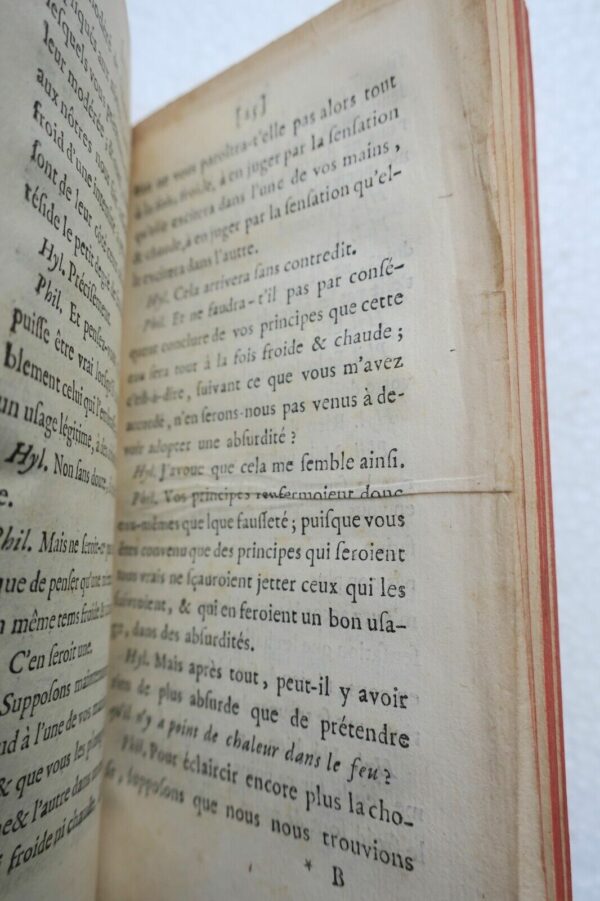 lesquels vous
leur modérée,
aux nôtres nous
froid d'une
font de leur côté
réside le petit degré de
Hyl. Précisément.
Phil. Et pensez-vous
puisse être vrai lorsqu'il
blement celui qui l'entend
un usage légitime, à des
Hyl. Non sans doute,
e.
Phil. Mais ne seroit-ce
que de penser qu'une même
n même tems froide &
C'en seroit une.
Supposons maintenant
ud à l'une de vos mains
& que vous les plongiez
e & l'autre dans
froide ni chaude
[25]
eau ne vous paroîtra-t'elle pas alors tout
à la fois, froide, à en juger par la sensation
qu'elle excitera dans l'une de vos mains,
& chaude, à en juger par la sensation qu'el-
le excitera dans l'autre.
Hyl. Cela arrivera sans contredit.
Phil. Et ne faudra-t'il pas par consé-
quent conclure de vos principes que cette
eau sera tout à la fois froide & chaude;
c'est-à-dire, suivant ce que vous m'avez
accordé, n'en serons-nous pas venus à de-
voir adopter une absurdité?
Hyl. J'avoue que cela me semble ainsi.
Phil. Vos principes renfermoient donc
eux-mêmes quelque fausseté; puisque vous
êtes convenu que des principes qui seroient
vrais ne sçauroient jetter ceux qui les
suivroient, & qui en feroient un bon usa-
ge, dans des absurdités.
Hyl. Mais après tout, peut-il y avoir
rien de plus absurde que de prétendre
qu'il n'y a point de chaleur dans le feu?
Phil. Pour éclaircir encore plus la cho-
se, supposons que nous nous trouvions
* B